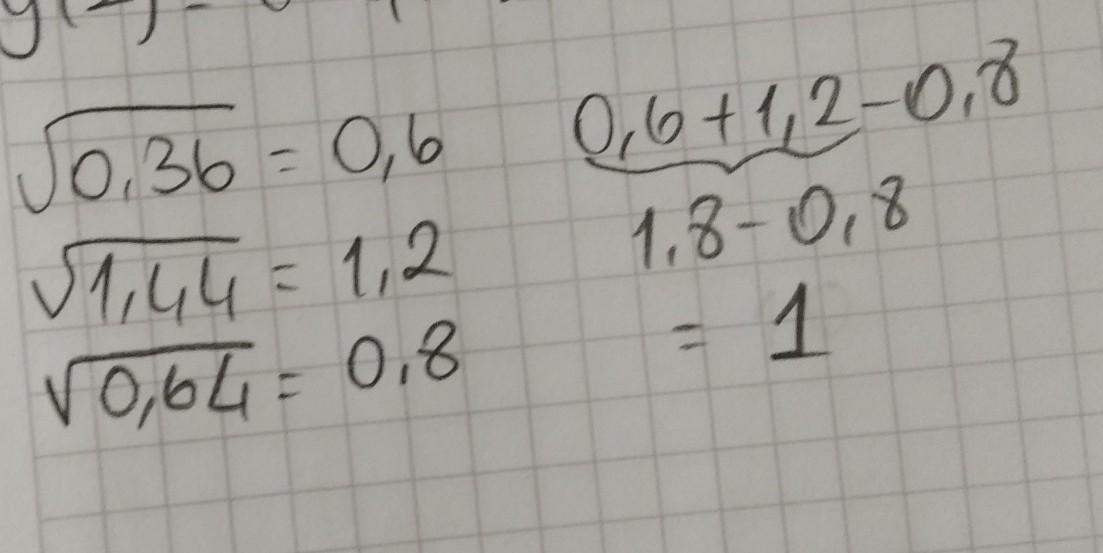 √0,36 = 0,6
√1,44 = 1,2
√0,64 = 0,8
0,6+1,2-0,8
1,8-0,8
= 1